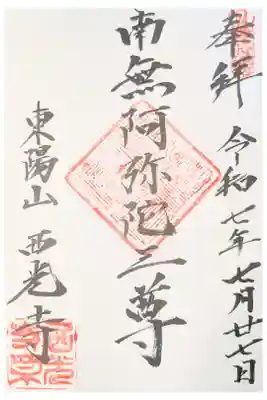 奉拝
令和七年七月廿七日
南無阿弥陀三尊
東陽山 西光寺